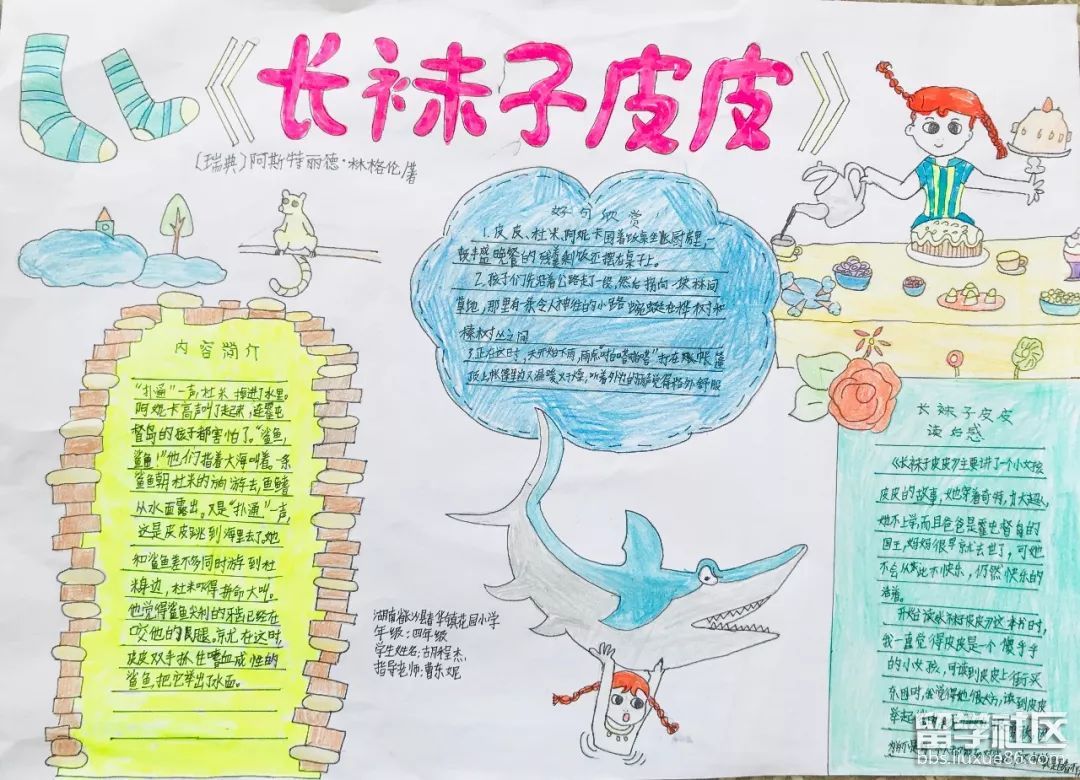 《长袜子皮皮》
[瑞典]阿斯特丽德·林格伦著
好句欣赏
1.皮皮、杜米、阿妮卡围着饭桌坐在厨房里,一
顿丰盛晚餐的残羹剩饭还摆在桌子上。
2.孩子们先沿着公路走了一段,然后拐向一块林间
草地,那里有一条令人神往的小路蜿蜒在桦树和
榛树丛之间
3.正在这时,天开始下雨,雨点
顶上,帐篷里边又温暖又干燥,听着外边的雨声觉得格外舒服
内容简介
“扑通”一声,杜米掉进了水里。
阿妮卡高声叫了起来,连霍屯
督岛的孩子都害怕了。“鲨鱼,
鲨鱼!”他们指着大海叫着。一条
鲨鱼朝杜米的方向游去,鱼鳍
从水面露出。又是“扑通”一声,
这是皮皮跳到海里去了。她
和鲨鱼差不多同时游到杜
米身边,杜米吓得拼命大叫。
他觉得鲨鱼尖利的牙齿已经在
咬他的腿。就在这时,
皮皮双手抓住嗜血成性的
鲨鱼,把它举出了水面。
湖南省长沙县春华镇花园小学
年级:四年级
学生姓名:胡程杰
指导老师:曹东妮
长袜子皮皮
读后感
《长袜子皮皮》主要讲了一个小女孩
皮皮的故事,她穿着奇特,力大超人,
她不上学,而且爸爸是霍屯督岛的
国王,妈妈很早就去世了,可她
不会从此不快乐,仍然快乐的
活着。
开始读长袜子皮皮这本书时,
我一直觉得皮皮是一个傻乎乎
的小女孩,可读到皮皮上街买
东西时,我觉得她很大方,读到皮皮
举起
留学社区
bbs.liuxue86.com